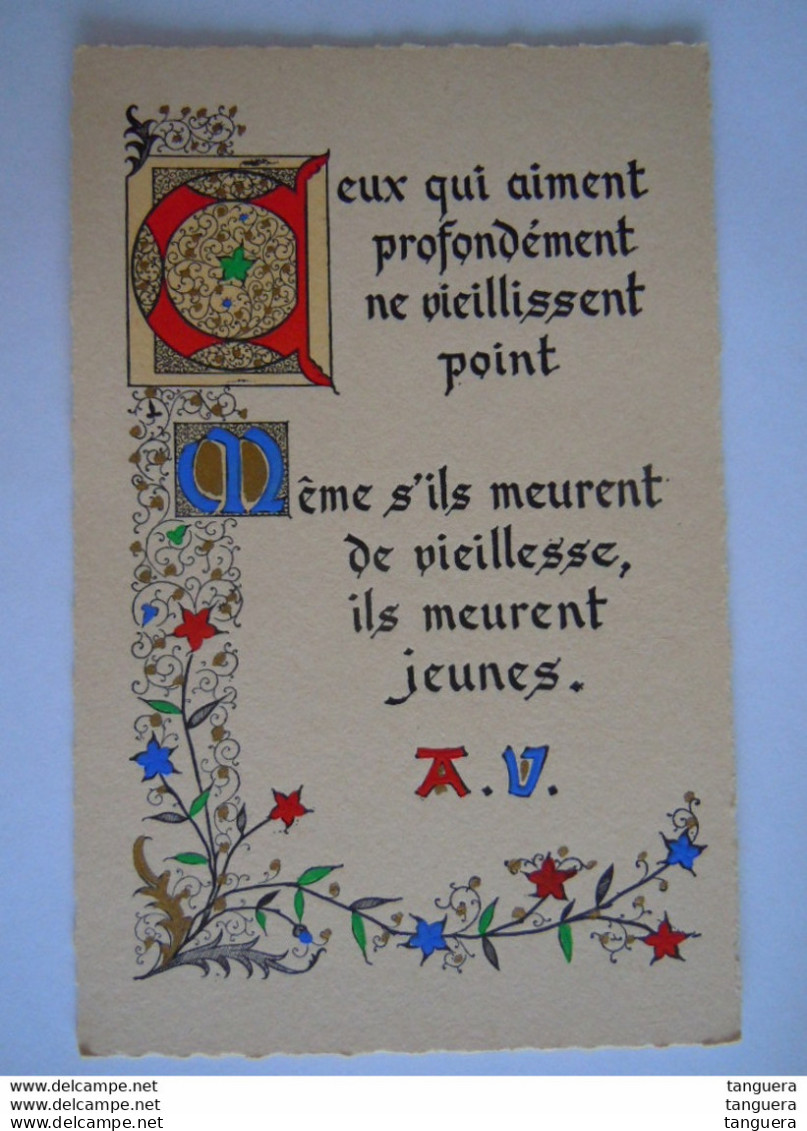 Ceux qui aiment
profondément
ne vieillissent
point
Même s'ils meurent
de vieillesse,
ils meurent
jeunes.
A.V.
www.delcampe.net
www.delcampe.net
www.delcampe.net
tanguera
tanguera
tanguera